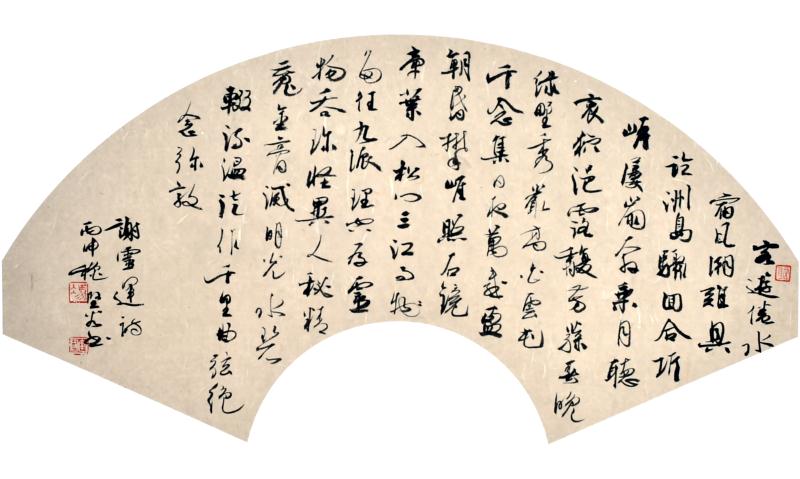 客遊倦水
宿風潮難具
論洲島驟回合圻
崖屢崩奔乘月聽
哀狖浥露馥芳蓀春晚
綠野秀巖高白雲屯
千念集日夜萬感盈
朝昏攀崖照石鏡
牽葉入松門三江事
多往九派理空存靈
物吝珍怪異人秘精
魂金膏滅明光水碧
輟流溫徒作千里曲弦絕
念弥敦
謝靈運詩
丙申穐 书